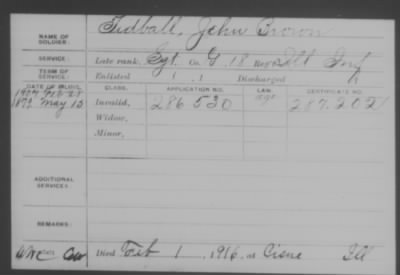 NAME OF SOLDIER: Tidball, John Brown
SERVICE: Late rank, Sgt. Co. G 18 Reg't Ill Inf
TERM OF SERVICE: Enlisted 1 . 1 Discharged 1
DATE OF FILING. CLASS. APPLICATION NO. LAW. CERTIFICATE NO.
1907 Feb 28
1879 May 15 Invalid, 286 530 287.202
Widow,
Minor,
ADDITIONAL SERVICES:
REMARKS:
Died Feb 1, 1916, at Cisne Ill